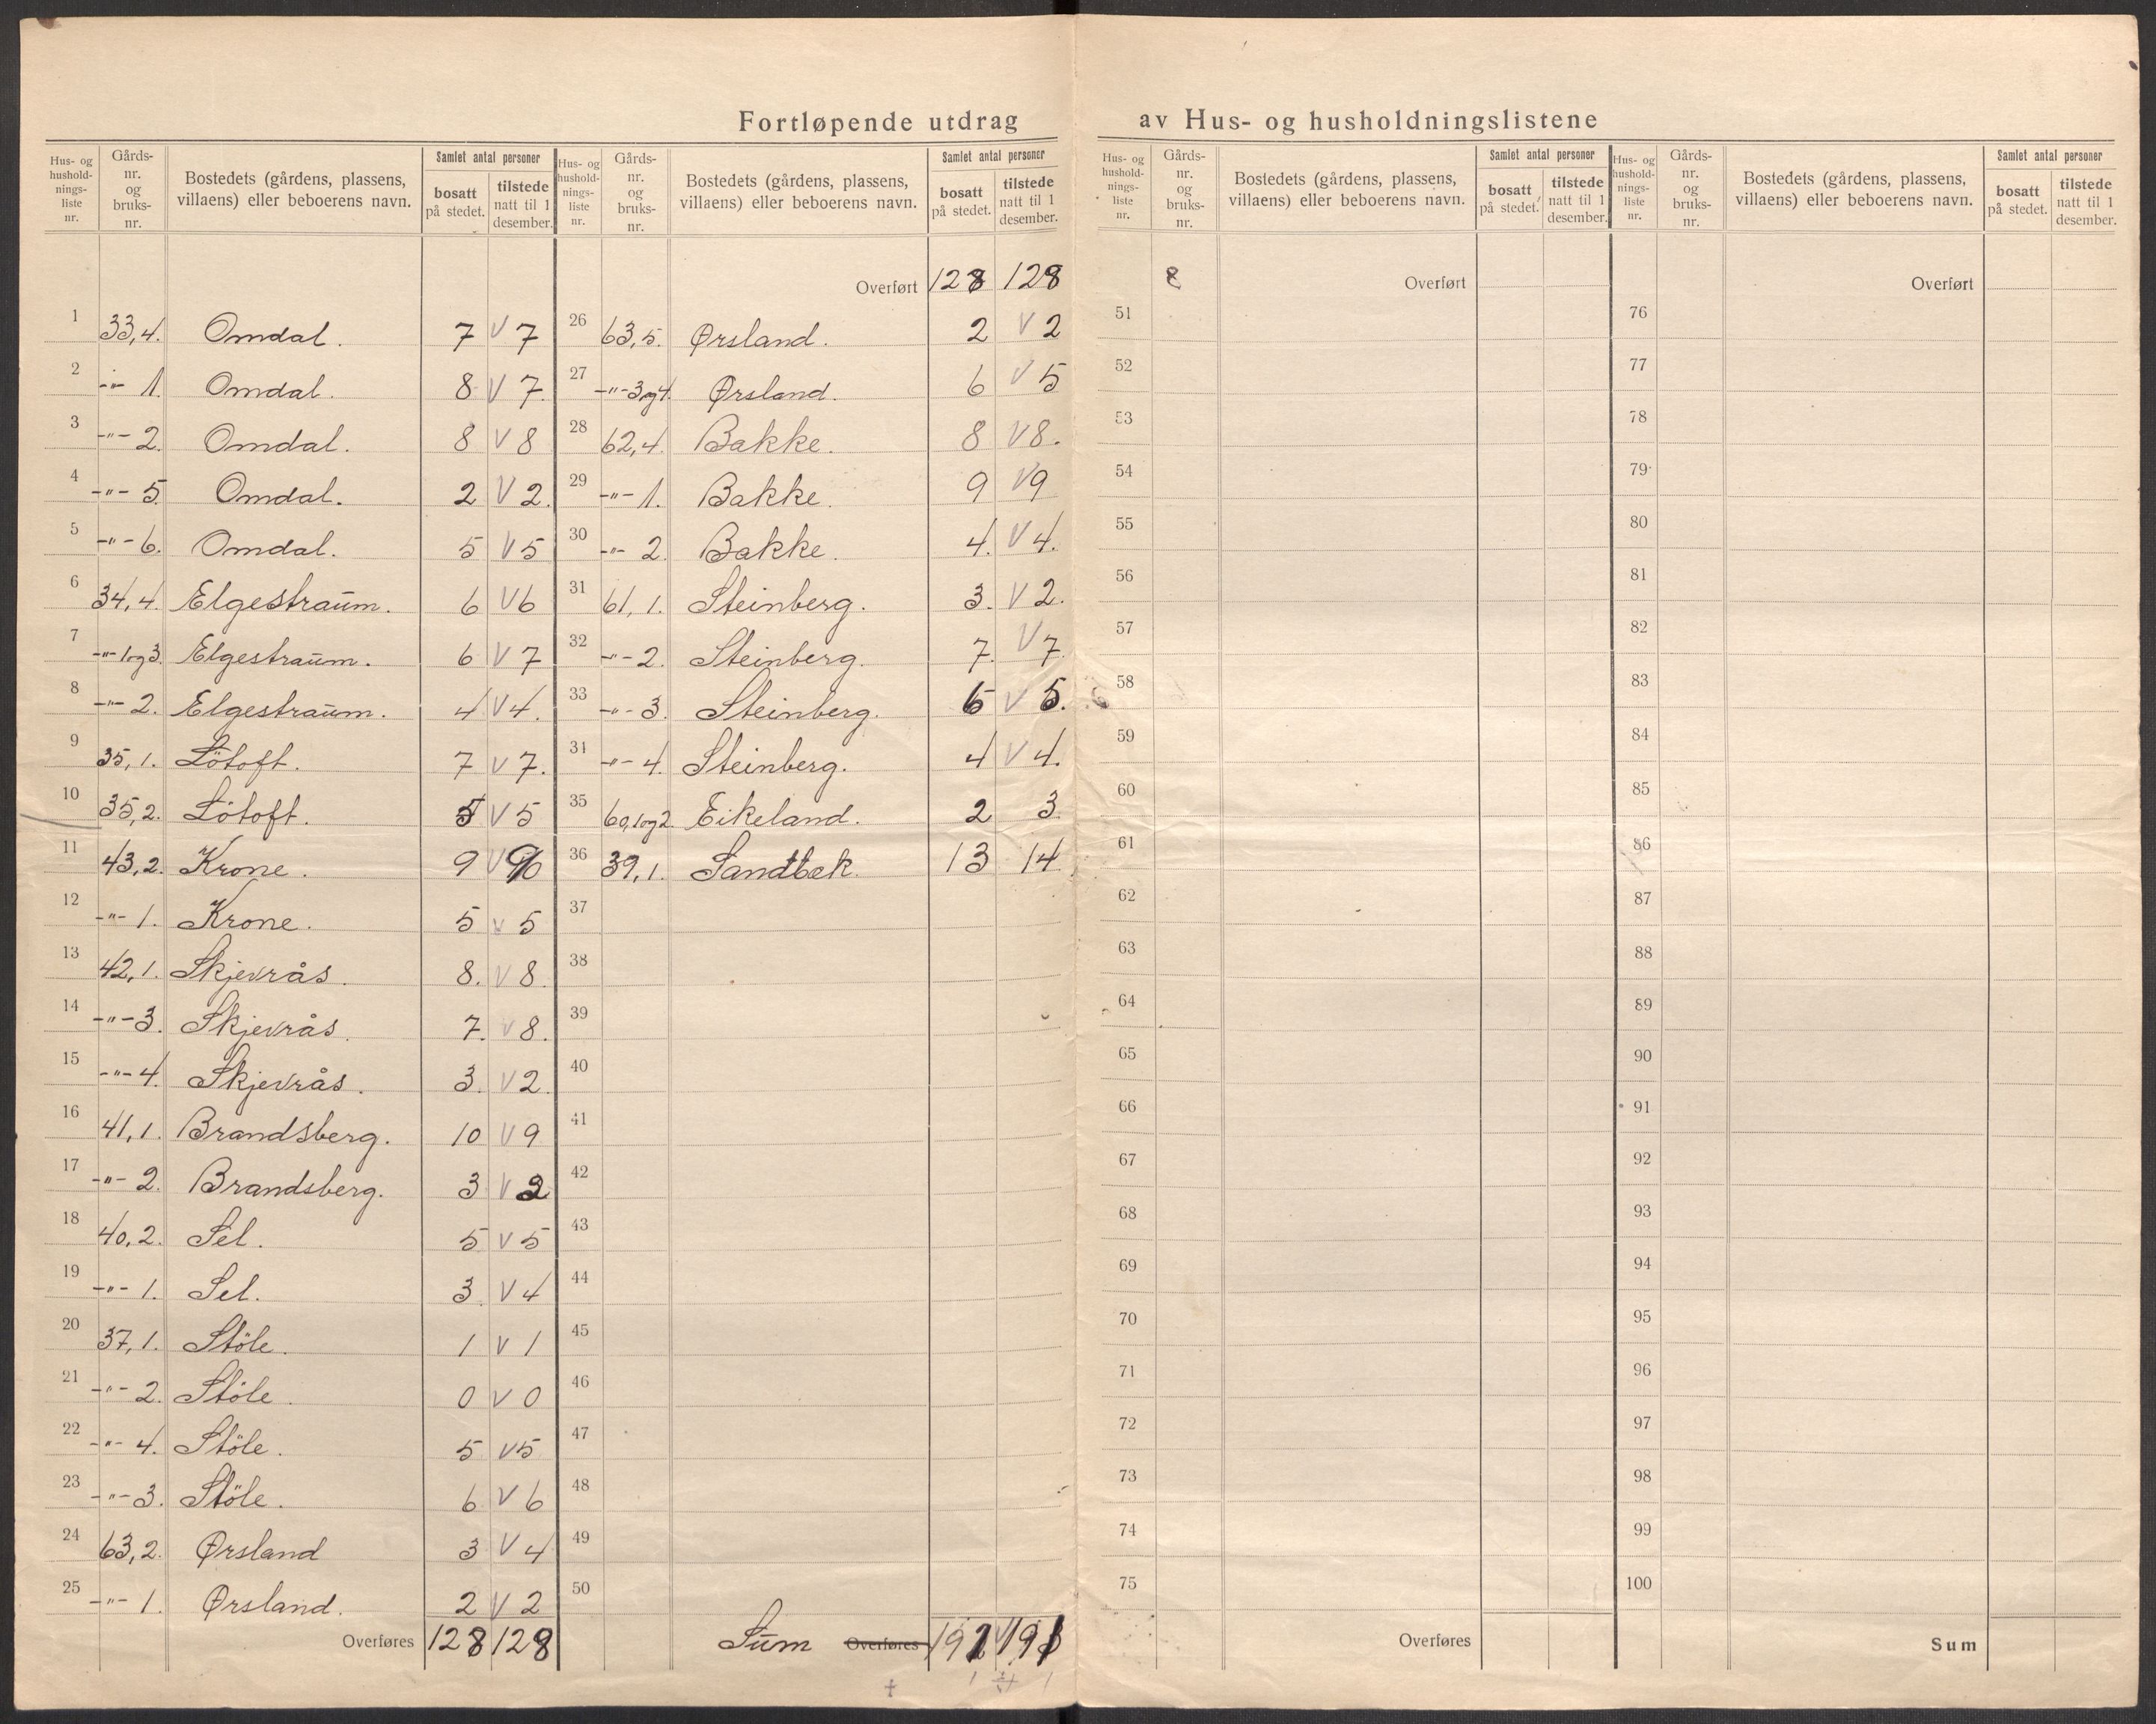 Fortløpende utdrag av Hus- og husholdningslistene
Hus- og husholdnings-liste nr. | Gårds-nr. og bruks-nr. | Bostedets (gårdens, plassens, villaens) eller beboerens navn. | Samlet antal personer bosatt på stedet. | tilstede natt til 1 desember.
1 33,4. Omdal. 7 V 7
2 -"- 1. Omdal. 8 V 7.
3 -"- 2. Omdal. 8 V 8
4 -"- 5. Omdal. 2 V 2.
5 -"- 6. Omdal. 5 V 5
6 34,4. Elgestraum. 6 V 6
7 -"- 1og3. Elgestraum. 6 V 7
8 -"- 2. Elgestraum. 4 V 4.
9 35,1. Lötoft. 7 V 7.
10 35,2. Lötoft. 5 V 5
11 43,2. Krone. 9 V
12 -"- 1. Krone. 5 V 5
13 42,1. Skjevrås. 8. V 8.
14 -"- 3. Skjevrås. 7. V 8.
15 -"- 4. Skjevrås. 3. V 2.
16 41,1. Brandsberg. 10 V 9
17 -"- 2. Brandsberg. 3 V 2
18 40,2. Sel. 5 V 5
19 -"- 1. Sel. 3. V 4
20 37,1. Stöle. 1 V 1
21 -"- 2. Stöle. 0 V 0
22 -"- 4. Stöle. 5 V 5
23 -"- 3. Stöle. 6 V 6
24 63,2. Ørsland 3 V 4
25 -"- 1. Ørsland. 2 V 2
Overføres 128 128
Hus- og husholdnings-liste nr. | Gårds-nr. og bruks-nr. | Bostedets (gårdens, plassens, villaens) eller beboerens navn. | Samlet antal personer bosatt på stedet. | tilstede natt til 1 desember.
Overført 128 128
26 63,5. Ørsland. 2 V 2
27 -"- 3og4. Ørsland. 6 V 5
28 62,4. Bakke. 8 V 8.
29 -"- 1. Bakke. 9 V 9
30 -"- 2. Bakke. 4. V 4.
31 61,1. Steinberg. 3. V 2.
32 -"- 2. Steinberg. 7. V 7.
33 -"- 3. Steinberg. V 5.
34 -"- 4. Steinberg. 4 V 4.
35 60,1og2. Eikeland. 2 3
36 39,1. Sandbæk. 13 14
37
38
39
40
41
42
43
44
45
46
47
48
49
50
Sum Overføres 191 191
Hus- og husholdnings-liste nr. | Gårds-nr. og bruks-nr. | Bostedets (gårdens, plassens, villaens) eller beboerens navn. | Samlet antal personer bosatt på stedet. | tilstede natt til 1 desember.
8 Overført
51
52
53
54
55
56
57
58
59
60
61
62
63
64
65
66
67
68
69
70
71
72
73
74
75
Overføres
Hus- og husholdnings-liste nr. | Gårds-nr. og bruks-nr. | Bostedets (gårdens, plassens, villaens) eller beboerens navn. | Samlet antal personer bosatt på stedet. | tilstede natt til 1 desember.
Overført
76
77
78
79
80
81
82
83
84
85
86
87
88
89
90
91
92
93
94
95
96
97
98
99
100
Sum